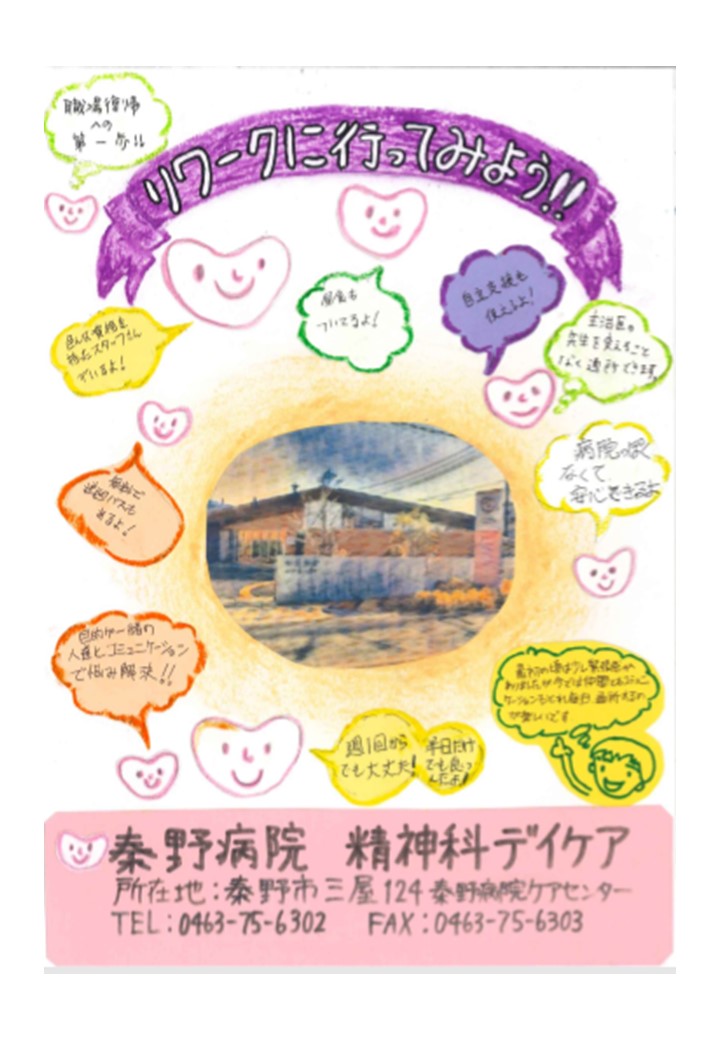 職場復帰
への
第一歩!!
リワークに行ってみよう!!
昼食も
ついてるよ!
自立支援も
使えるよ!
主治医の
先生を変えること
なく通所できます。
色んな資格を
持ったスタッフさん
でいるよ!
病院っぽく
なくて
安心できるよ
無料で
送迎バスも
来るよ!
目的が一緒の
人達とコミュニケーション
で悩み解決!!
最初の頃は少し緊張感が
ありましたが今では仲間とコミュニ
ケーションもとれ毎日通所するの
が楽しいです
週1回から
でも大丈夫!
半日だけ
でも良っ
んだよ!
秦野病院 精神科デイケア
所在地:秦野市三屋124 秦野病院ケアセンター
TEL:0463-75-6302 FAX:0463-75-6303